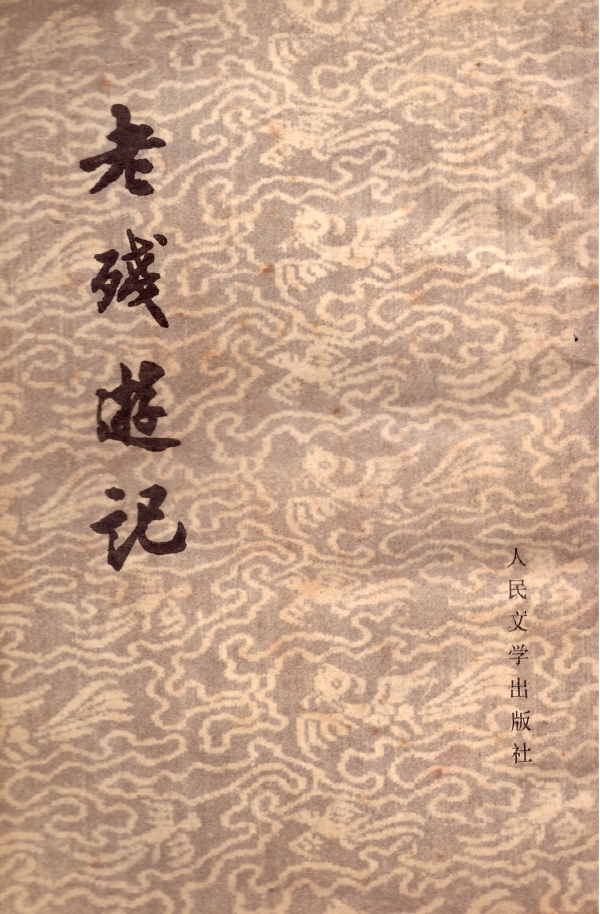 老残遊记
人民文学出版社